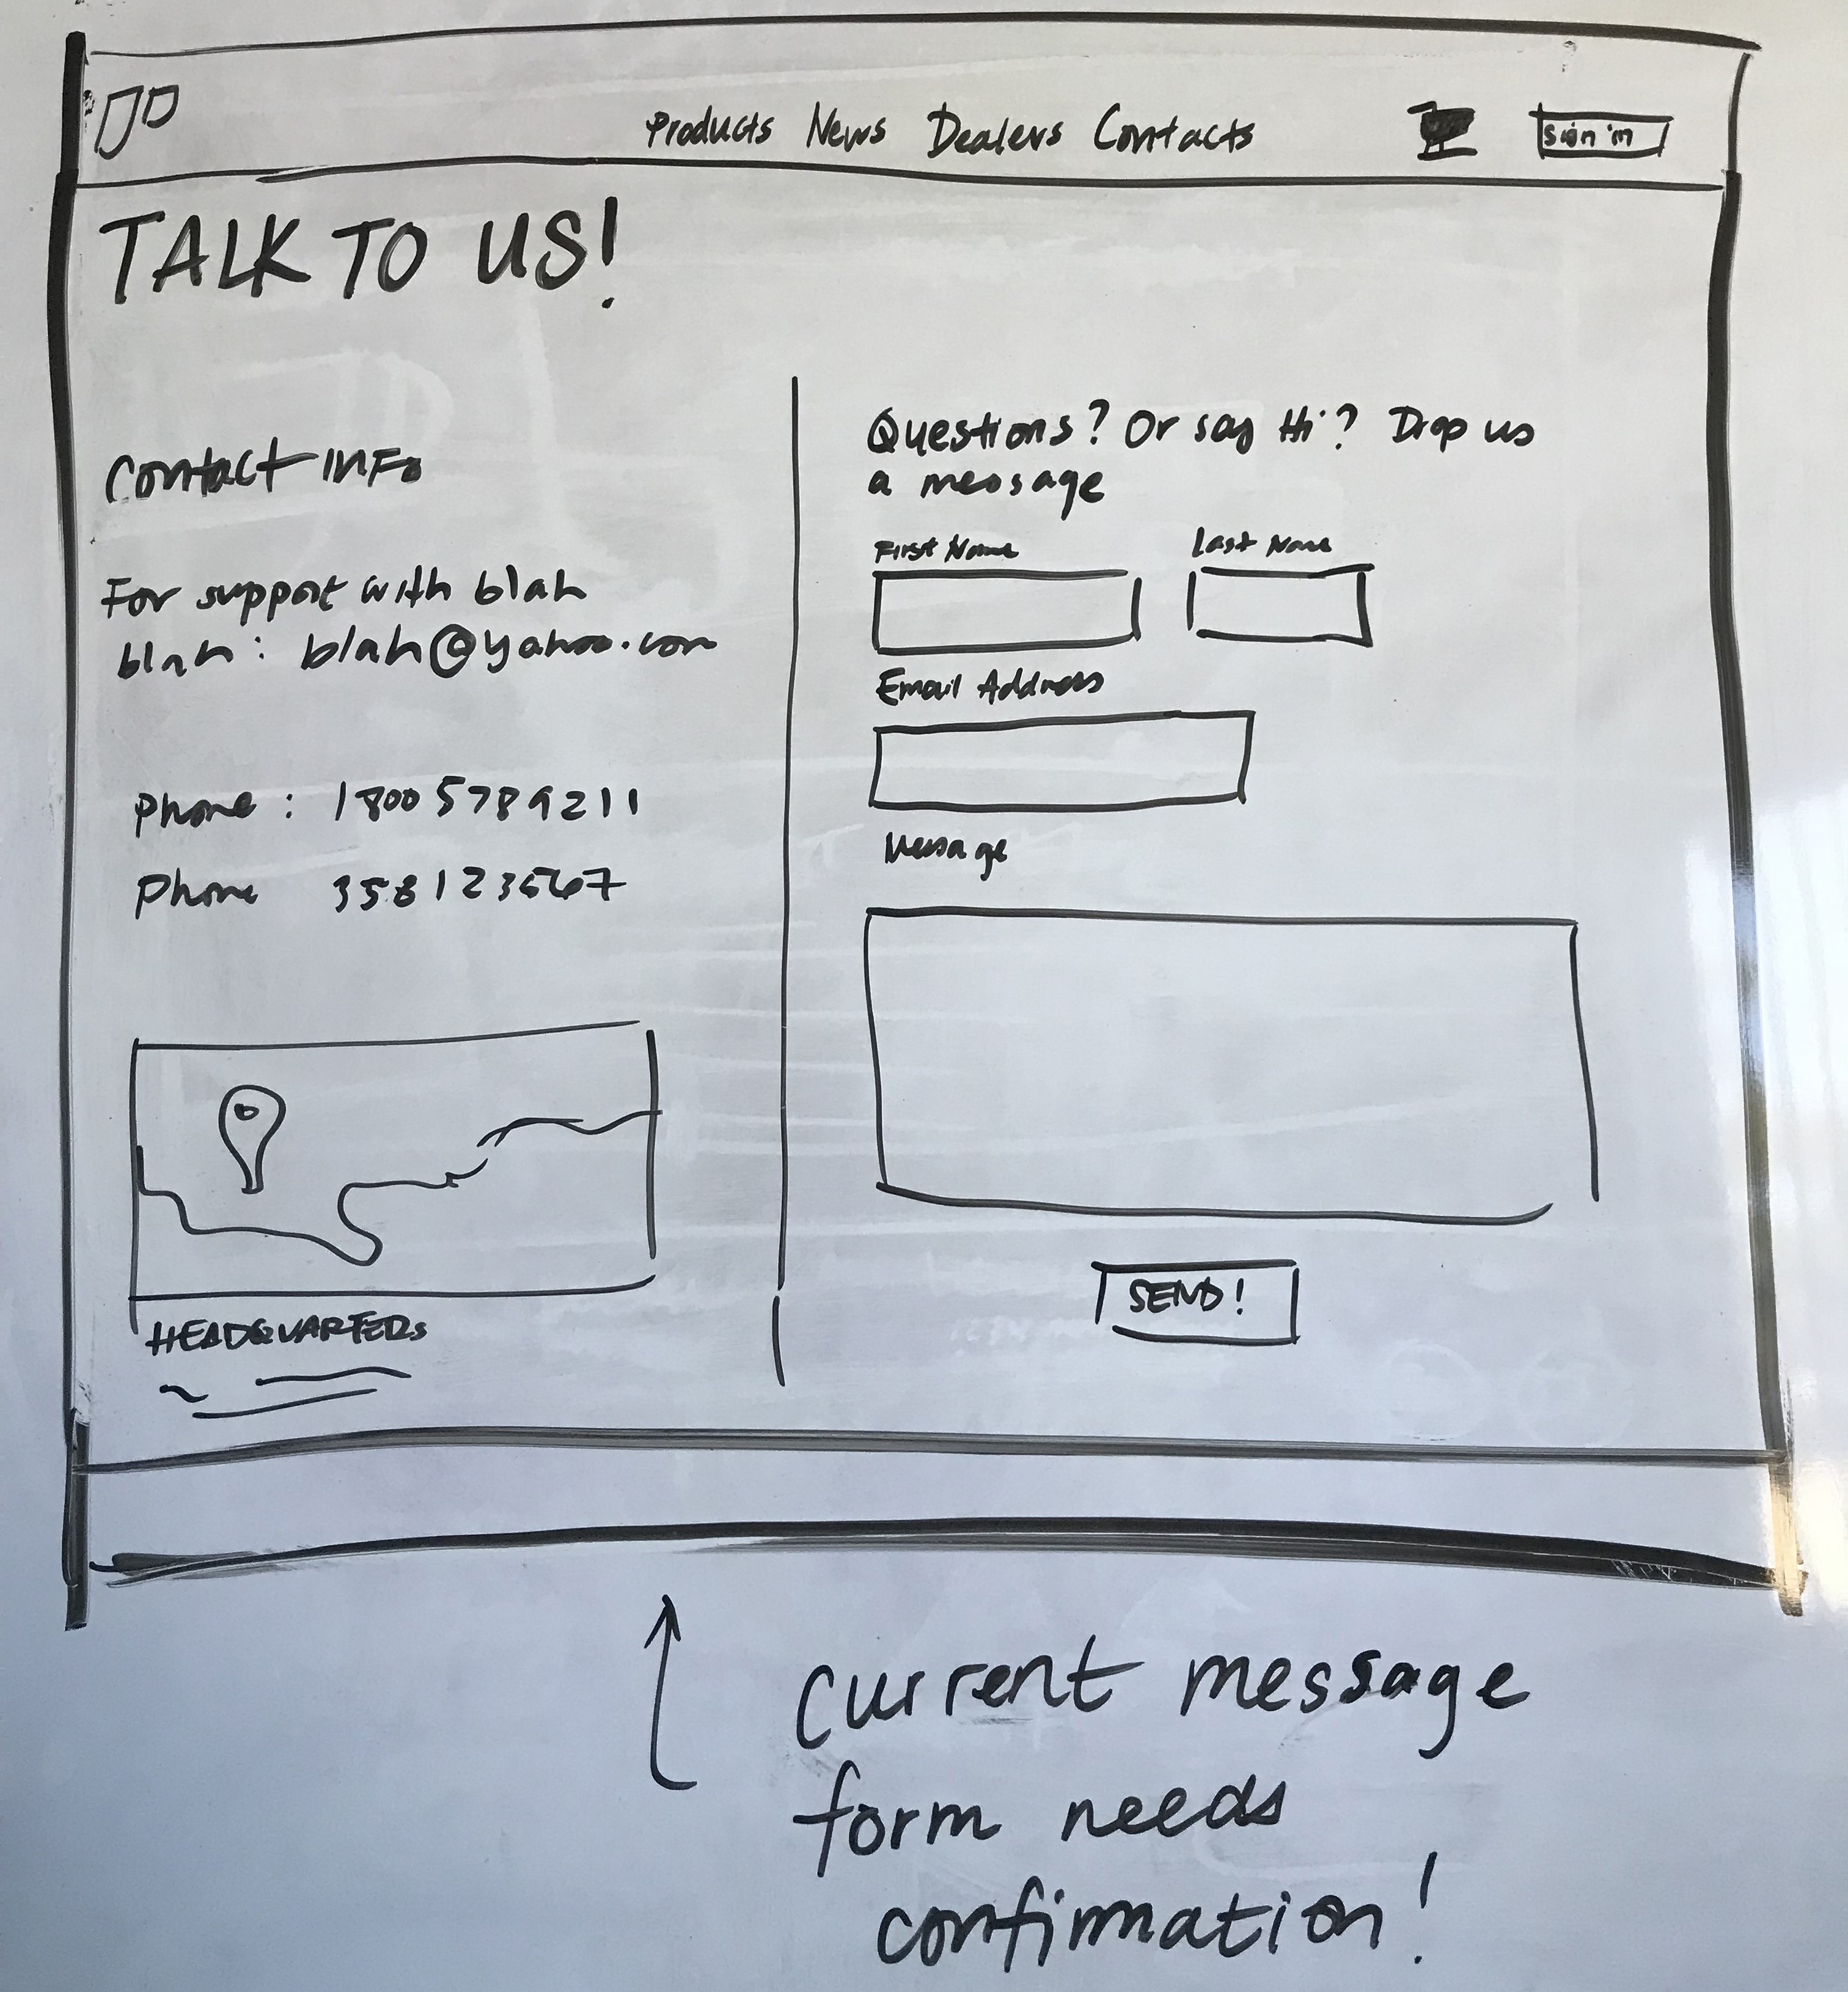 Products News Dealers Contacts
sign in
TALK TO US!
Contact INFO
For support with blah
blah: blah@yahoo.com
Phone: 1800 5789211
Phone
HEADQUARTERS
Questions? Or say Hi? Drop us
a message
First Name Last Name
Email Address
Message
SEND!
current message
form needs
confirmation!